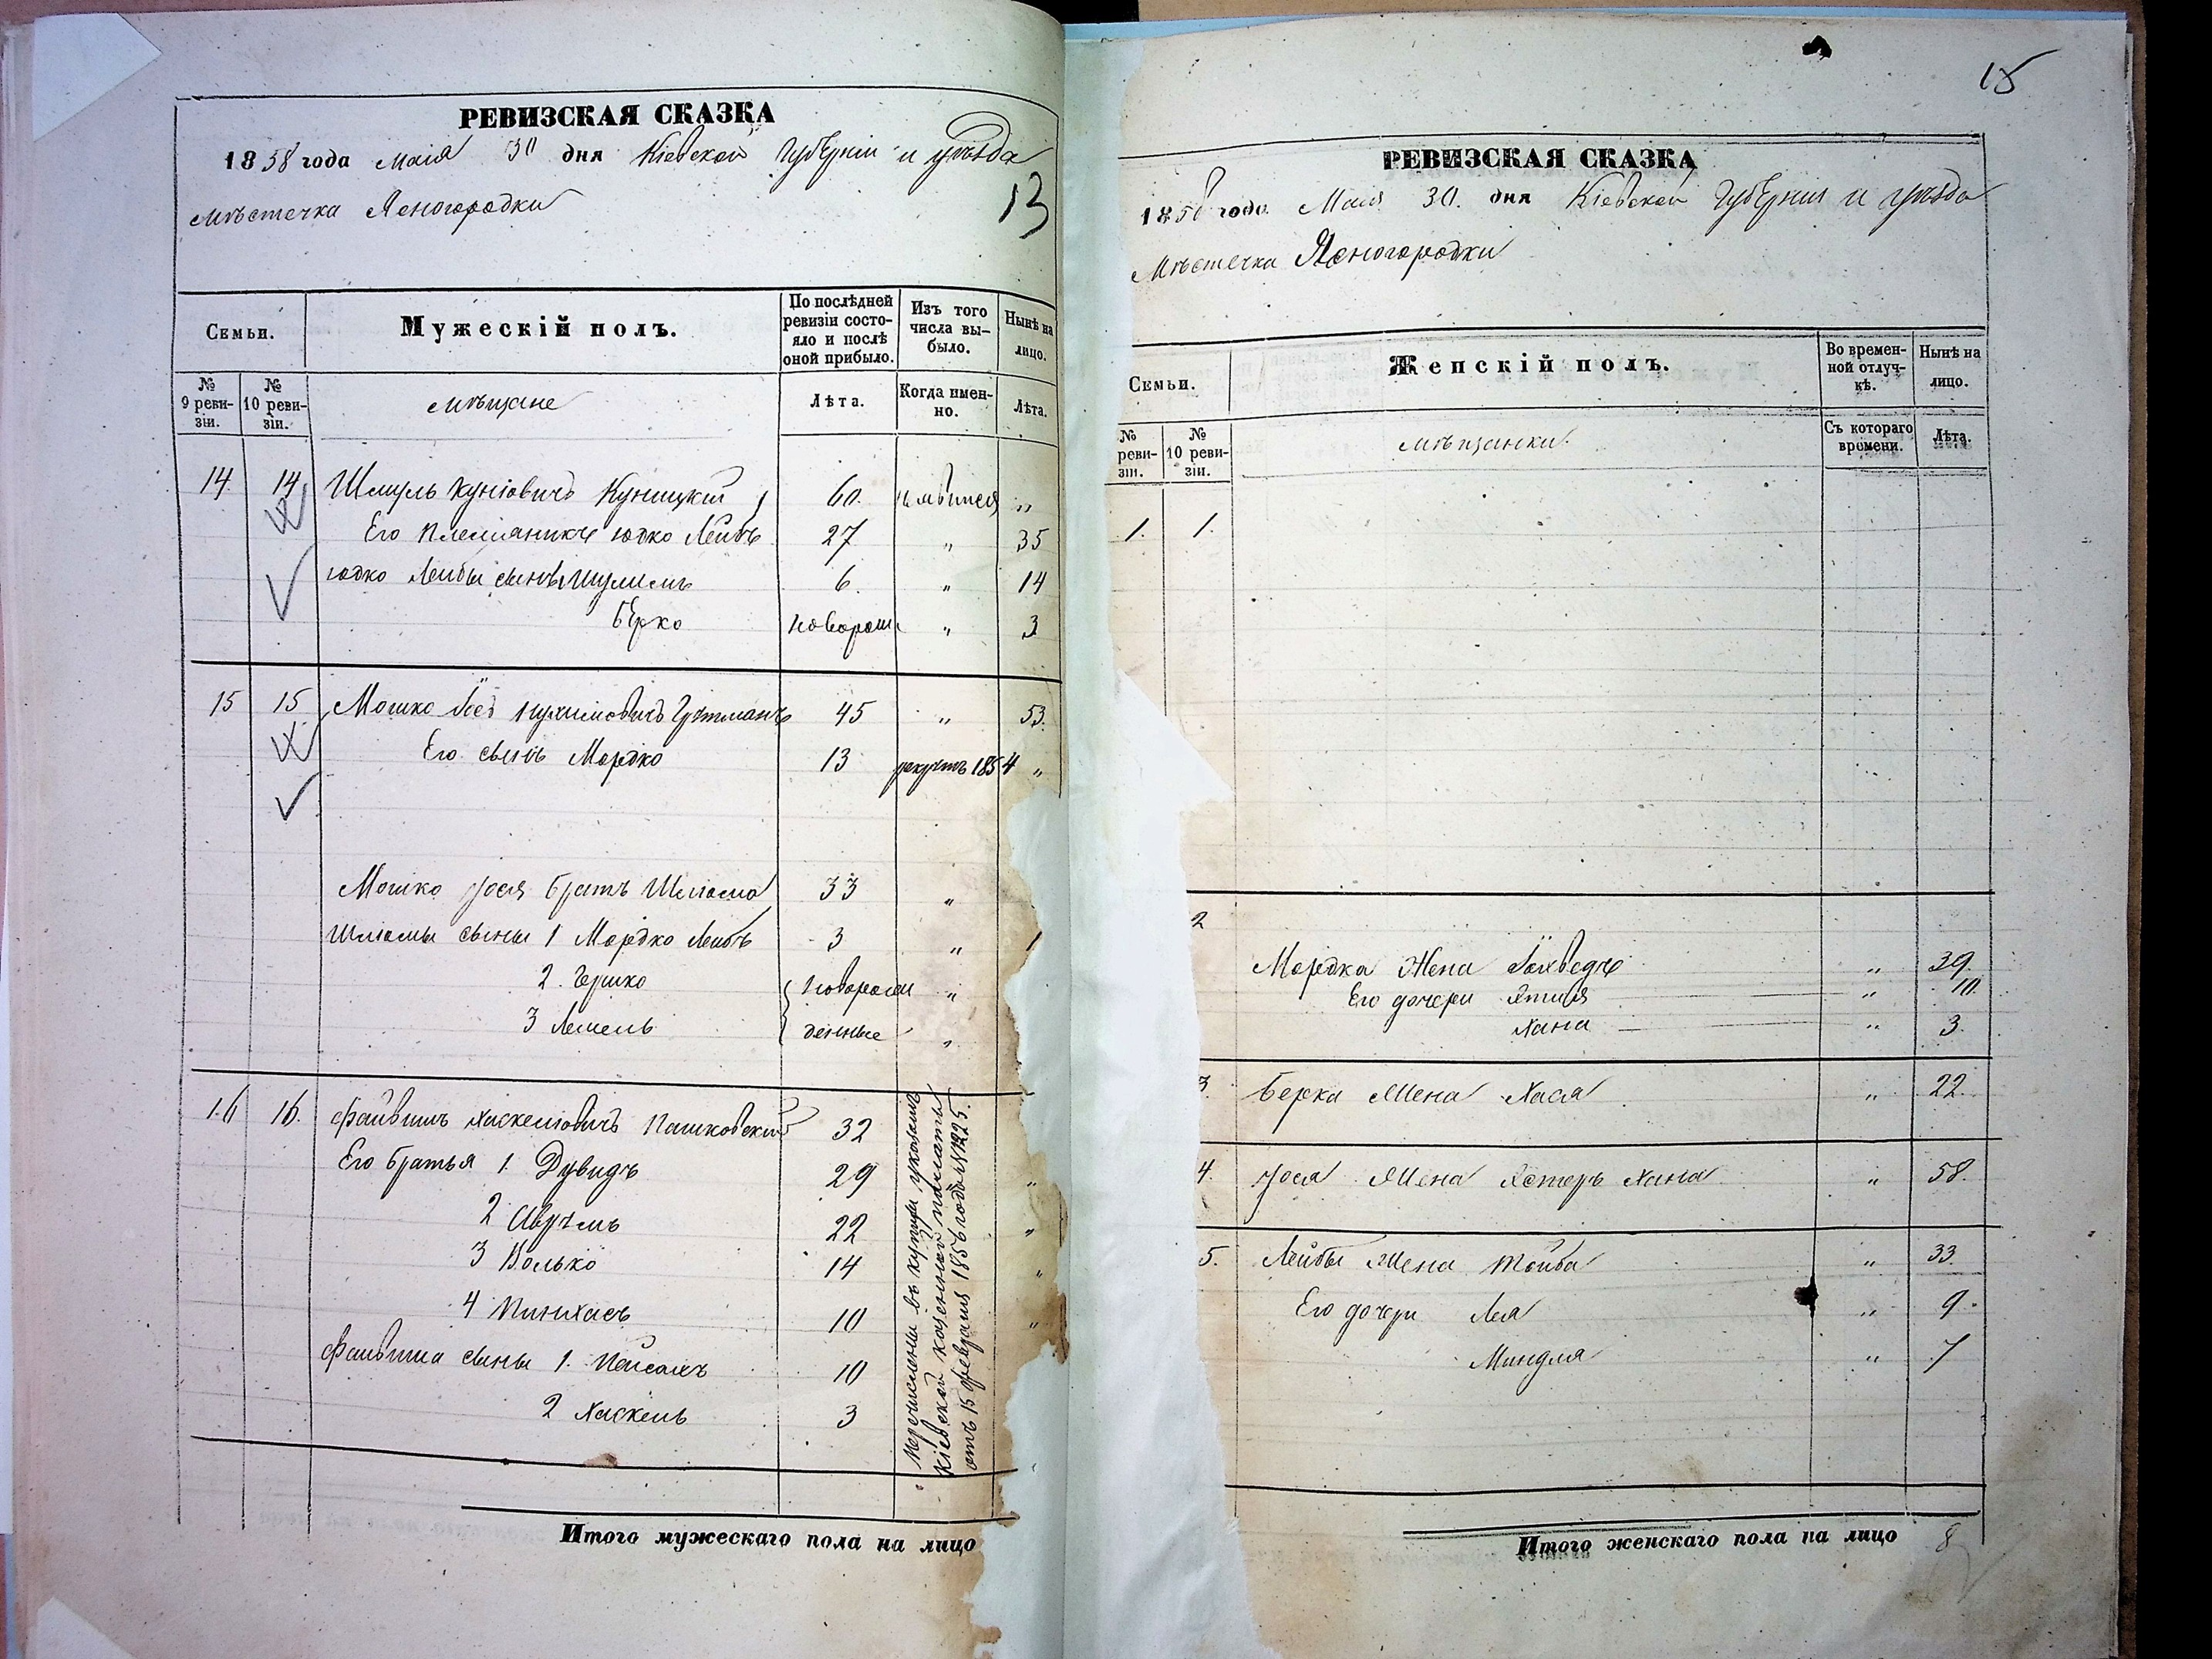 РЕВИЗСКАЯ СКАЗКА
1858 года маія 30 дня Кіевской Губерніи и уѣзда
мѣстечка Ясногородки
13
Семьи.
Мужескій полъ.
По послѣдней ревизіи состояло и послѣ оной прибыло.
Изъ того числа выбыло.
Нынѣ на лицо.
№ 9 ревизіи.
№ 10 ревизіи.
мѣщане
Лѣта.
Когда именно.
Лѣта.
14 14 Шмуль Куніовичъ Куницкій 60 „
Его племianикъ Юдко Лейбъ 27 „ 35
Юдко Лейбы сынъ Шулимъ 6 „ 14
Берко новорож „ 3
15 15 Мошко Іосъ 45 „ 53
Его сынъ Мордко 13 рекрутъ 1854 „
Мошко Іося братъ Шліома 33 „
Шліомы сыны 1 Мордко Лейбъ 3 „ 1
2. Гершко новорож „
3 Лемель денные „
16 16. Файвишъ Хаскеліовичъ Пашковскій 32
Его братья 1. Дувидъ 29 „
2 Аврумъ 22 „
3 Волько 14 „
4 Пинхасъ 10 „
Файвиша сыны 1. Пейсахъ 10
2 Хаскель 3
перечислены въ купцы указомъ
Кіевской казенной палаты
отъ 15 февраля 1856 года №1225.
Итого мужескаго пола на лицо
15
РЕВИЗСКАЯ СКАЗКА
1858 года Маія 30. дня Кіевской Губерніи и уѣзда
Мѣстечка Ясногородки
Семьи.
Женскій полъ.
Во временной отлучкѣ.
Нынѣ на лицо.
№ реви-зіи.
№ 10 ревизіи.
мѣщанки
Съ котораго времени.
Лѣта.
1. 1.
2
Мордка Жена „ 39.
Его дочери „ 10.
Хана „ 3.
3. Берка Жена Хася „ 22.
4. Іося Жена Эстеръ Хана „ 58.
5. Лейбы Жена Тойба „ 33.
Его дочери Лея „ 9.
Миндля „ 7
Итого женскаго пола на лицо 8